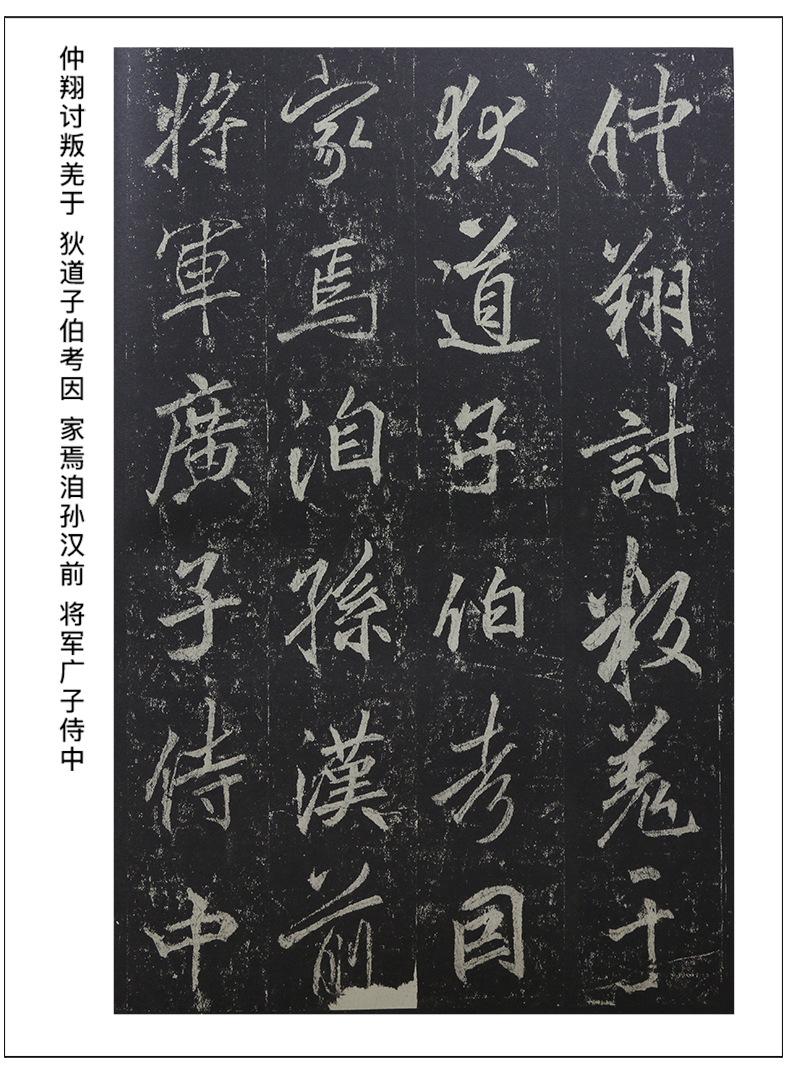 仲翔討叛羌于
狄道子伯考因
家焉洎孫漢前
將軍廣子侍中
仲翔讨叛羌于 狄道子伯考因 家焉洎孙汉前 将军广子侍中